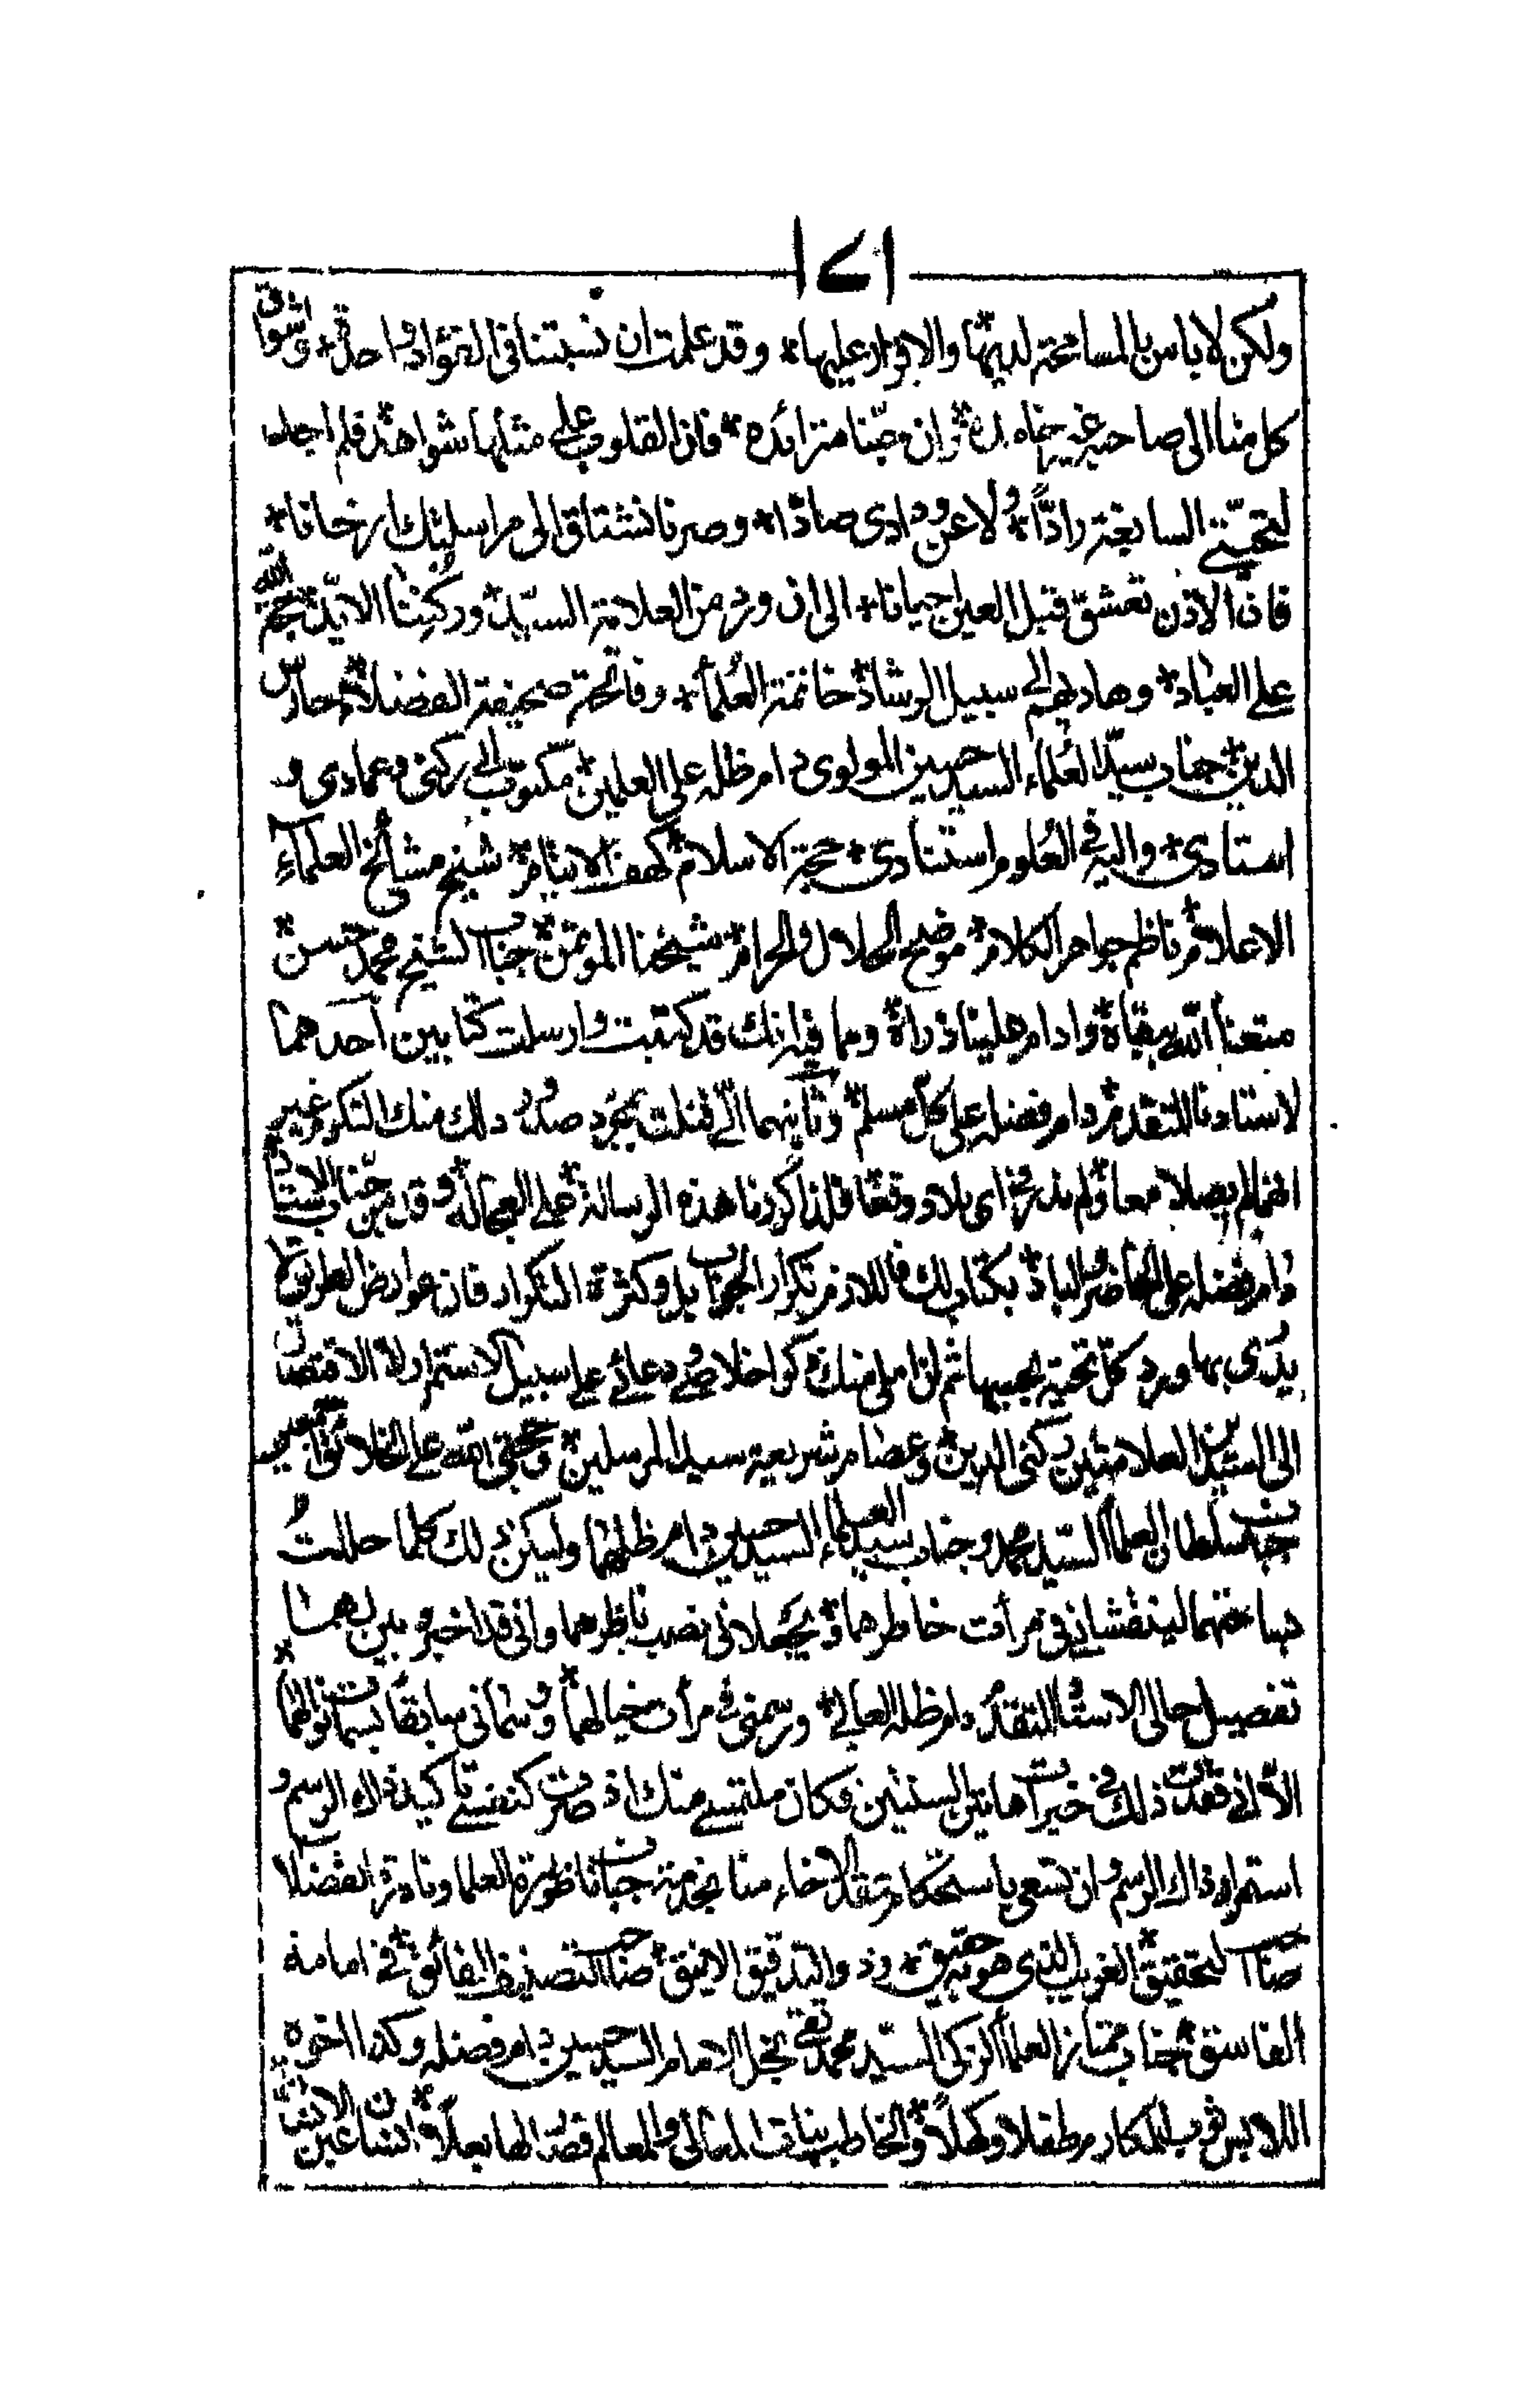 ١٧١
ولكن لا باس بالمسامحة لديها والاقرار عليها * وقد علمت ان نسبتنا في التؤاد واحدة * واشواق
كل منا الى صاحبه غير خامدة * وان محبّنا متزائدة * فان القلوب على مثلها شواهد فلم اجد
لتحيّتي السابغة رادّاً * ولا عن ودادي صادّا * وصرنا نشتاق الى مراسلتك ارخانا *
فان الاذن تعشق قبل العين احيانا * الى ان ورد من العلامة السيّد وركننا الايّد حجة الله
على العباد * وهاديهم الى سبيل الرشاد * خاتمة العلماء * وفاتحة صحيفة الفضلاء * حارس
الدين * جناب سيّد العلماء السيد حسين المولوى دام ظله على العلمين * مكتوب الى ركنى وعمادى و
استادى * واليه في العلوم استنادى * حجة الاسلام * كهف الانام * شيخ مشائخ العلماء
الاعلام * ناظم جواهر الكلام * موضح الحلال والحرام * شيخنا المؤتمن * جناب الشيخ محمد حسن *
متعنا الله ببقاه * وادام علينا ذراه * ومما فيه انك قد كتبت وارسلت كتابين احدهما
لاستادنا المتقدم * دام فضله على كل مسلم * وثانيهما الىّ فنلت بمجرد صدور ذلك منك التكرم غير
انهما لم يصلا معا * ولم ندر فى اى بلاد وقعا فلذا كررنا هذه الرسالة * على العجالة * وقد من جناب الاستاد
دام فضله على الحاضر والباد * بكتاب لك فاللازم تكرار الجواب بل وكثرة التكرار فان عوارض الطريق لا
يدرى بها ورد كل تحية بحسبها ثم ان املى منك ذكر اخلاصى ودعائى على سبيل الاستمرار لا الاقتصار
الى السيّدين العلامتين ركنى الدين * وعضام شريعة سيد المرسلين * وحجتى الله على الخلائق اجمعين
جناب سلطان العلماء السيّد محمد وجناب سيد العلماء السيد حسين دام ظلهما وليكن ذلك كلما حللت
بساحتهما لينقشانى فى مرأت خاطرهما * ويجعلانى نصب ناظرهما وانى قد اخبر بين لهما
تفصيل حالى الاستاد المتقدم دام ظله العالى * ورسمنى فى مرأت خيالهما * وشملنى سابقا بسمات نوالهما *
الا انى فقدت ذلك فى خيرات هاتين السنتين فكان ملتمسى منك اذ صرت كنفسى تاكيد ذلك الرسم و
استمرار ذاك الوسم وان تسعى باستحكام عقد الاخاء منا بخدمة جناب ناظورة العلما ونادرة الفضلا
صاحب التحقيق * الغريب الذى هو به حقيق * وذو التدقيق الانيق * صاحب التصنيف الفائق * فى امامة
الفاسق * جناب ممتاز العلماء الزكى السيّد محمد تقى نجل الامام السيد حسين دام فضله وكذا اخوه
اللابس ثوب المكارم طفلا وكهلاً * والخاطب بنات المعالى والمعالم فصد لها بعلاً * انسان عين الانسان